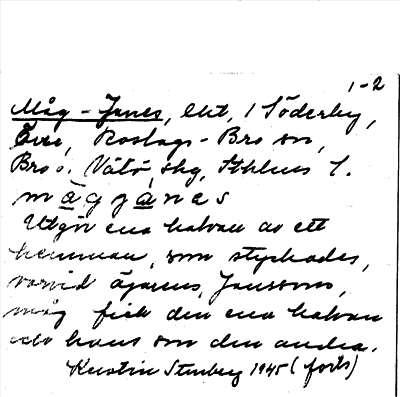 1-2
Måg-Janes, lht, 1 Söderby,
Övre, Roslags-Bro sn,
Bro o. Vätö shg, Sthlms l.
m å g j ä n e s
Utgör ena halvan av ett
hemman, som styckades,
varvid ägarens, Janssons,
måg fick den ena halvan
och hans son den andra.
Kerstin Stenberg 1945 (forts)